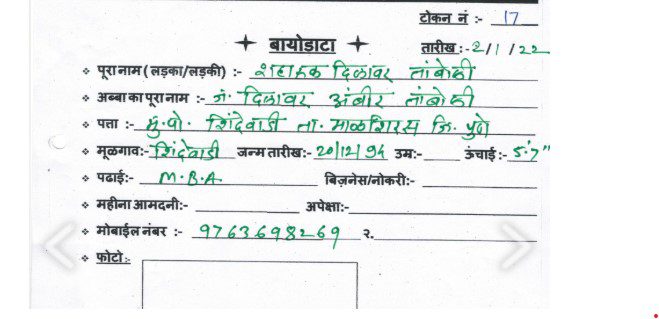 टोकन नं :- 17
बायोडाटा
तारीख :- 2/1/22
पूरा नाम (लड़का/लड़की) :- शहारुक दिलावर तांबोळी
अब्बा का पूरा नाम :- जं. दिलावर अंबीर तांबोळी
पत्ता :- मु.पो. शिंदेवाडी ता. माळशिरस जि. पुणे
मूळगाव:- शिंदेवाडी जन्म तारीख:- 20/12/94 उम्र:- ऊंचाई :- 5.'7"
पढाई:- M.B.A बिज़नेस/नोकरी:-
महीना आमदनी:- अपेक्षा:-
मोबाईल नंबर :- 9763698269 २.
फोटो:-